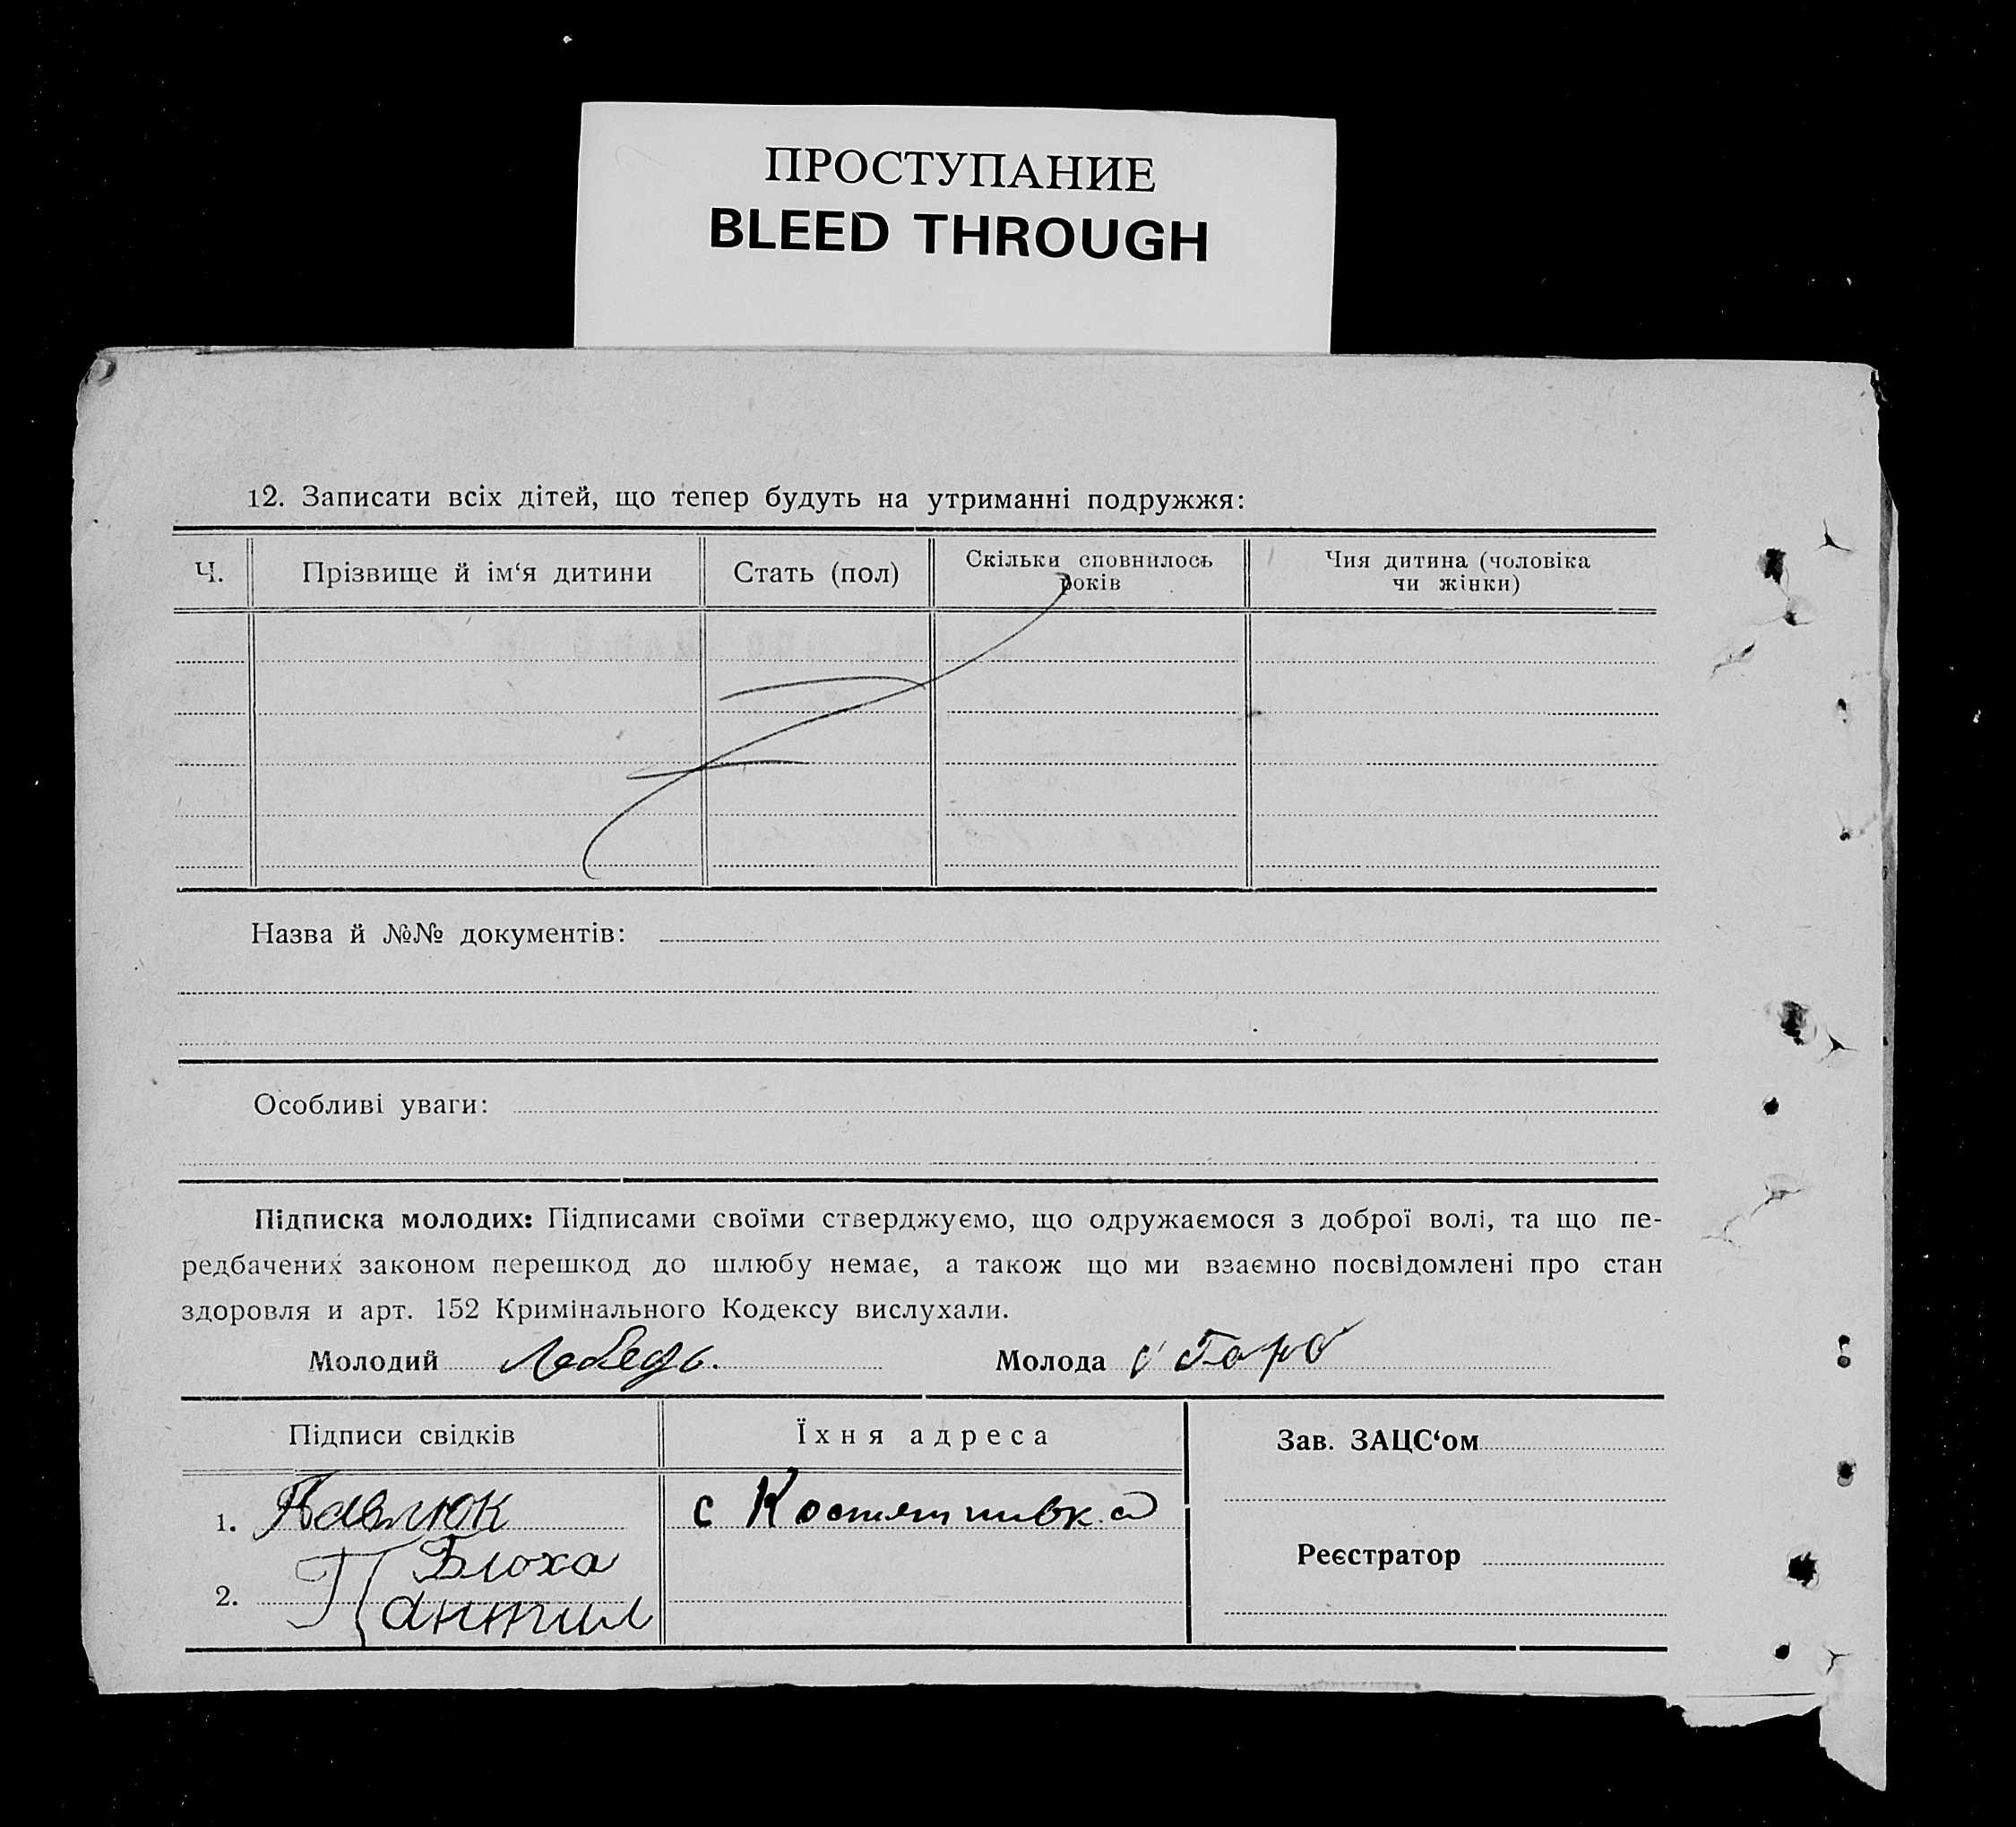 ПРОСТУПАНИЕ
BLEED THROUGH
12. Записати всіх дітей, що тепер будуть на утриманні подружжя:
Ч. Прізвище й ім‘я дитини Стать (пол) Скільки сповнилось років Чия дитина (чоловіка чи жінки)
Назва й №№ документів:
Особливі уваги:
Підписка молодих: Підписами своїми стверджуємо, що одружаємося з доброї волі, та що пе-
редбачених законом перешкод до шлюбу немає, а також що ми взаємно посвідомлені про стан
здоровля и арт. 152 Кримінального Кодексу вислухали.
Молодий Лебедь. Молода
Підписи свідків Їхня адреса Зав. ЗАЦС‘ом
1. Павлюк с
Блоха Реєстратор
2. Пантил